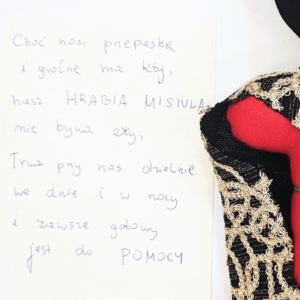 Choć nosi przepaskę
i groźne ma kły,
nasz HRABIA MISIULA
nie bywa zły,
Trwa przy nas dzielnie
we dnie i w nocy
i zawsze gotowy
jest do POMOCY